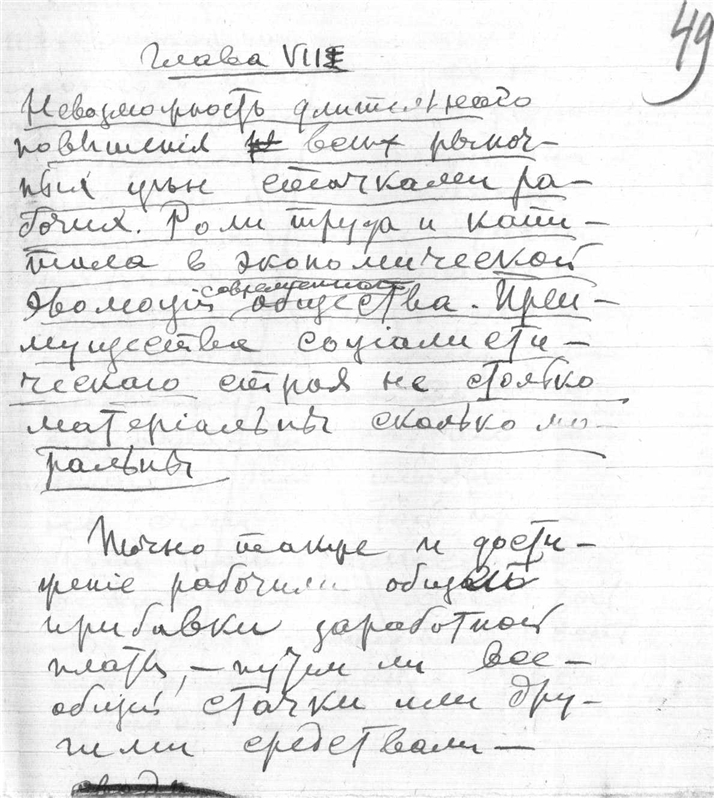 49
Глава VIII
Невозможность длительнаго
повышенія всех рыноч-
ных цѣн стачками ра-
бочих. Роли труда и капи-
тала в экономической
эволюціи современнаго общества. Преи-
мущества соціалисти-
ческаго строя не столько
матеріальны сколько мо-
ральны
Точно также и дости-
женіе рабочими общей
прибавки заработной
платы, — путем ли все-
общей стачки или дру-
гими средствами —